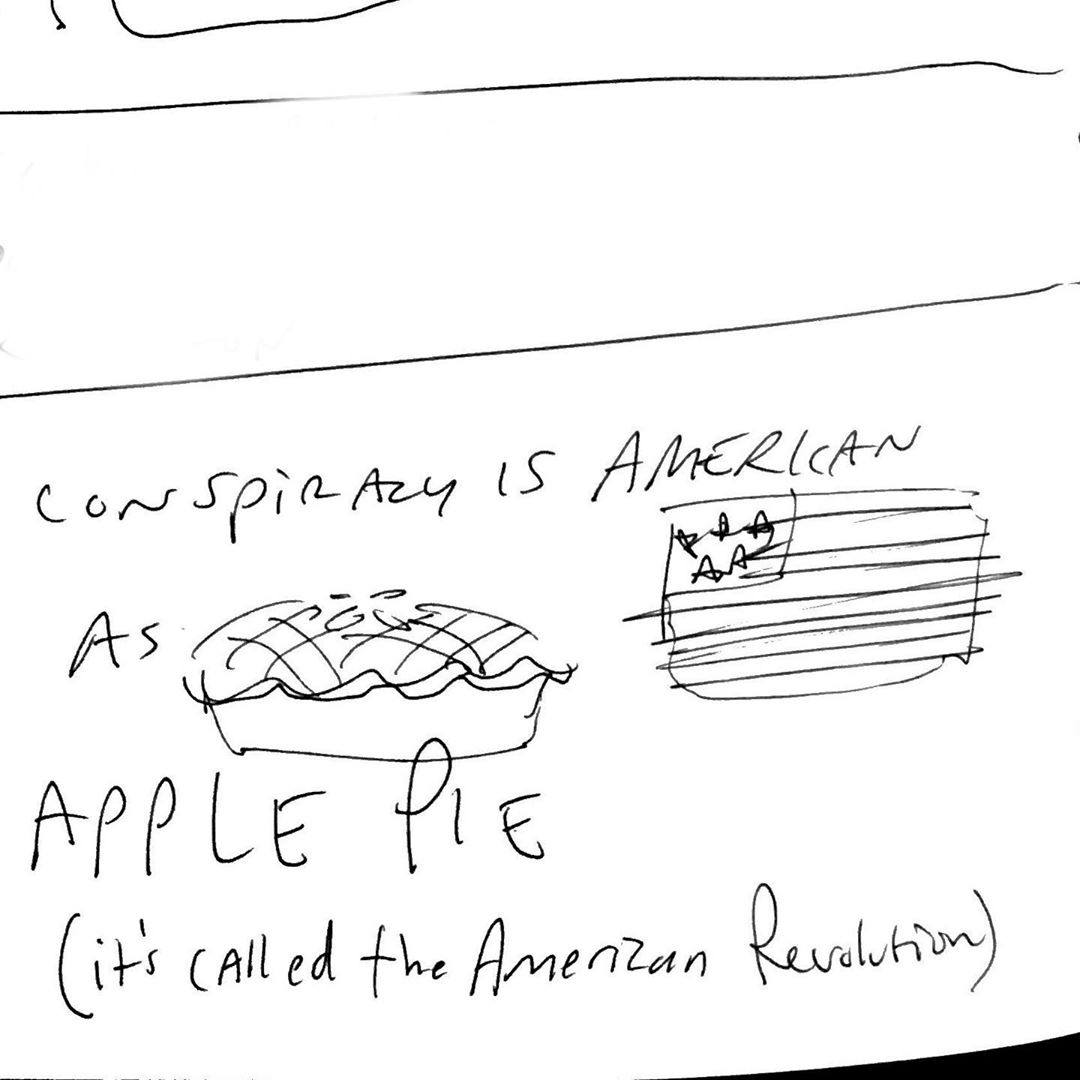 CONSPIRACY IS AMERICAN
AS
APPLE PIE
(it's called the American Revolution)